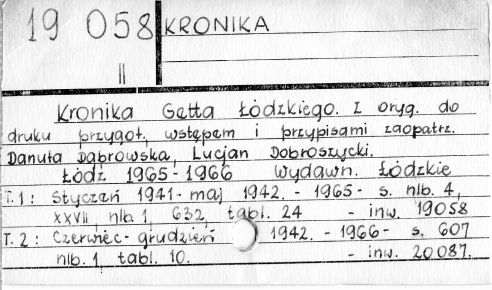 19 058 KRONIKA
II
Kronika Getta Łódzkiego. Z oryg. do
druku przygot., wstępem i przypisami zaopatrz.
Danuta Dąbrowska, Lucjan Dobroszycki.
Łódź 1965-1966 Wydawn. Łódzkie
T. 1: Styczeń 1941- maj 1942. - 1965- s. nlb. 4,
XXVII, nlb. 1, 632, tabl. 24 - inw. 19058
T. 2: Czerwiec- grudzień 1942. - 1966- s. 607
nlb. 1, tabl. 10. - inw. 20087.